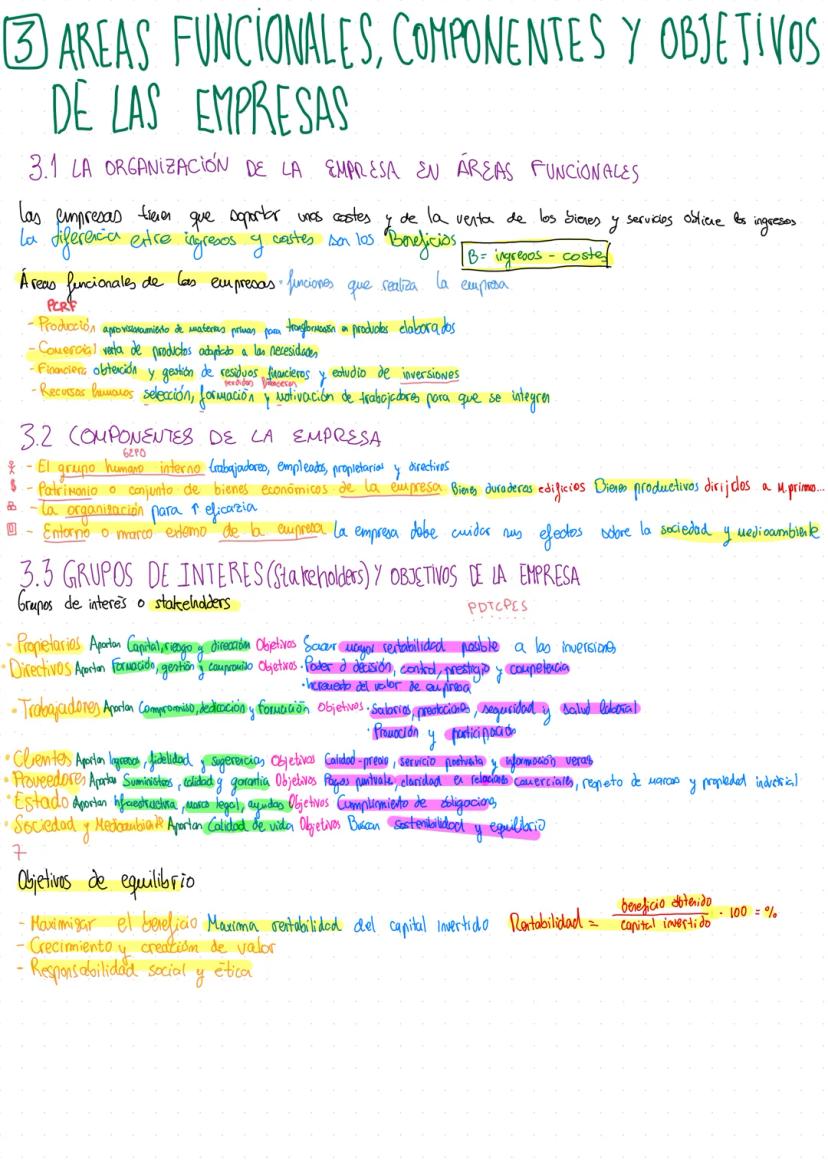 3 AREAS FUNCIONALES, COMPONENTES Y OBJETIVOS
DE LAS EMPRESAS
3.1 LA ORGANIZACIÓN DE LA EMPRESA EN ÁREAS FUNCIONALES
Las empresas tienen que soportar unos costes y de la venta de los bienes y servicios obtiene los ingresos
La diferencia entre ingresos y costes son los Beneficios
B= ingresos - costes
Áreas funcionales de las empresas: funciones que realiza la empresa
PCRF
- Producción aprovisionamiento de materias primas para transformación en productos elaborados
- Comercial venta de productos adaptado a las necesidades
- Financiera obtención y gestión de residuos financieros y estudio de inversiones
- Recursos humanos selección, formación y motivación de trabajadores para que se integren
3.2 COMPONENTES DE LA EMPRESA
- El grupo humano interno trabajadores, empleados, propietarios y directivos
$ - Patrimonio o conjunto de bienes económicos de la empresa Bienes duraderos edificios Bienes productivos dirijdos a M.primo...
- La organización para ↑ eficazia
- Entorno o marco externo de la empresa La empresa debe cuidar sus efectos sobre la sociedad y medioambiente
3.3 GRUPOS DE INTERES (Stakeholders) Y OBJETIVOS DE LA EMPRESA
Grupos de interés o stakeholders
PDTCPES
- Propietarios Aportan Capital, riesgo y dirección Objetivos Sacar mayor rentabilidad posible a las inversiones
• Directivos Aportan Formación, gestión y compromiso Objetivos • Poder d decisión, control, prestigio y competencia
• Incremento del valor de empresa
• Trabajadores Aportan Compromiso, dedicación y formación Objetivos • Salarios, prestaciones, seguridad y salud laboral
• Promoción y participación
• Clientes Aportan Ingresos, fidelidad y sugerencias Objetivos Calidad-precio, servicio postventa y información veraz
• Proveedores Aportan Suministros, calidad y garantía Objetivos Pagos puntuales, claridad en relaciones comerciales, respeto de marcas y propiedad industrial
• Estado Aportan Infraestructura, marco legal, ayudas Objetivos Cumplimiento de obligaciones
• Sociedad y Medioambiente Aportan Calidad de vida Objetivos Buscan sostenibilidad y equilibrio
7
Objetivos de equilibrio
- Maximizar el beneficio Maxima rentabilidad del capital invertido Rentabilidad = beneficio obtenido / capital invertido · 100 = %
- Crecimiento y creación de valor
- Responsabilidad social y ética